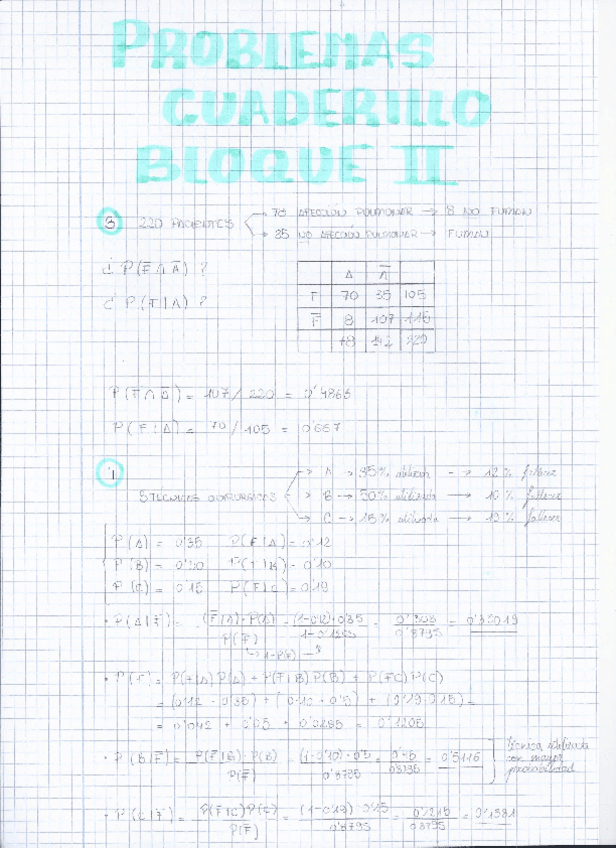 PROBLEMAS
CUADERILLO
BLOQUE II
3 220 PACIENTES
70 AFECCIÓN PULMONAR → 8 NO FUMAN
35 NO AFECCIÓN PULMONAR → FUMAN
¿ P(F̅ ∩ A̅) ?
¿ P(F|A) ?
A A̅
F 70 35 105
F̅ 8 107 115
220
P(F̅ ∩ A̅) = 107/220 = 0'4863
P(F|A) = 70/105 = 0'667
1
3 TÉCNICAS QUIRÚRGICAS
→ A → 35% utilizan → 12% fallece
→ B → 50% utilizada → 10% fallece
→ C → 15% utilizada → 19% fallecen
P(A) = 0'35 P(F|A) = 0'12
P(B) = 0'50 P(F|B) = 0'10
P(C) = 0'15 P(F|C) = 0'19
• P(A|F̅) = (F̅|A)·P(A) / P(F̅) = (1-0'12)·0'35 / 1-0'1205 = 0'308 / 0'8795 = 0'35019
1-P(F)
• P(F) = P(F|A) P(A) + P(F|B) P(B) + P(FC) P(C)
= (0'12 · 0'35) + (0'10 · 0'5) + (0'19·0'15) =
= 0'042 + 0'05 + 0'0285 = 0'1205
• P(B|F̅) = P(F̅|B)·P(B) / P(F̅) = (1-0'10)·0'5 / 0'8795 = 0'45 / 0'8795 = 0'5116
técnica utilizada
con mayor
probabilidad
• P(C|F̅) = P(F̅|C) P(C) / P(F̅) = (1-0'19)·0'15 / 0'8795 = 0'1215 / 0'8795 = 0'1381